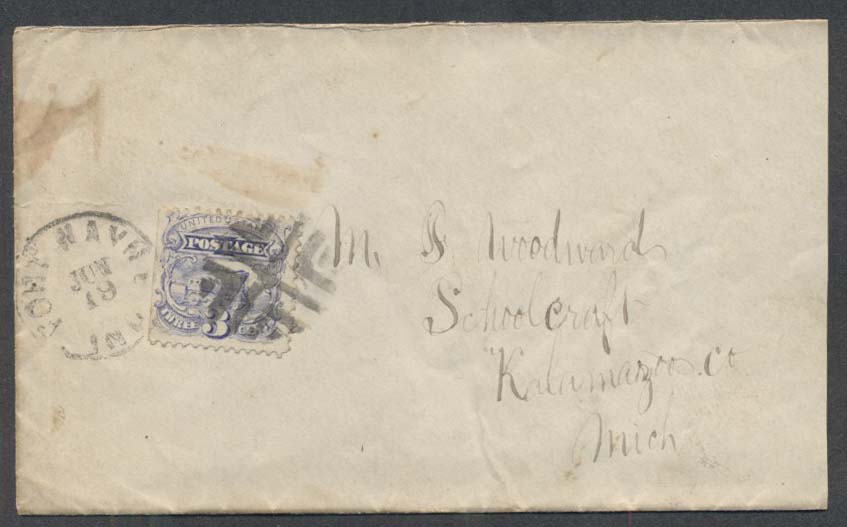 FORT WAYNE IND
JUN
19
UNITED STATES
POSTAGE
THREE 3 CENTS
M. F. Woodward
Schoolcraft
Kalamazoo. Co
Mich